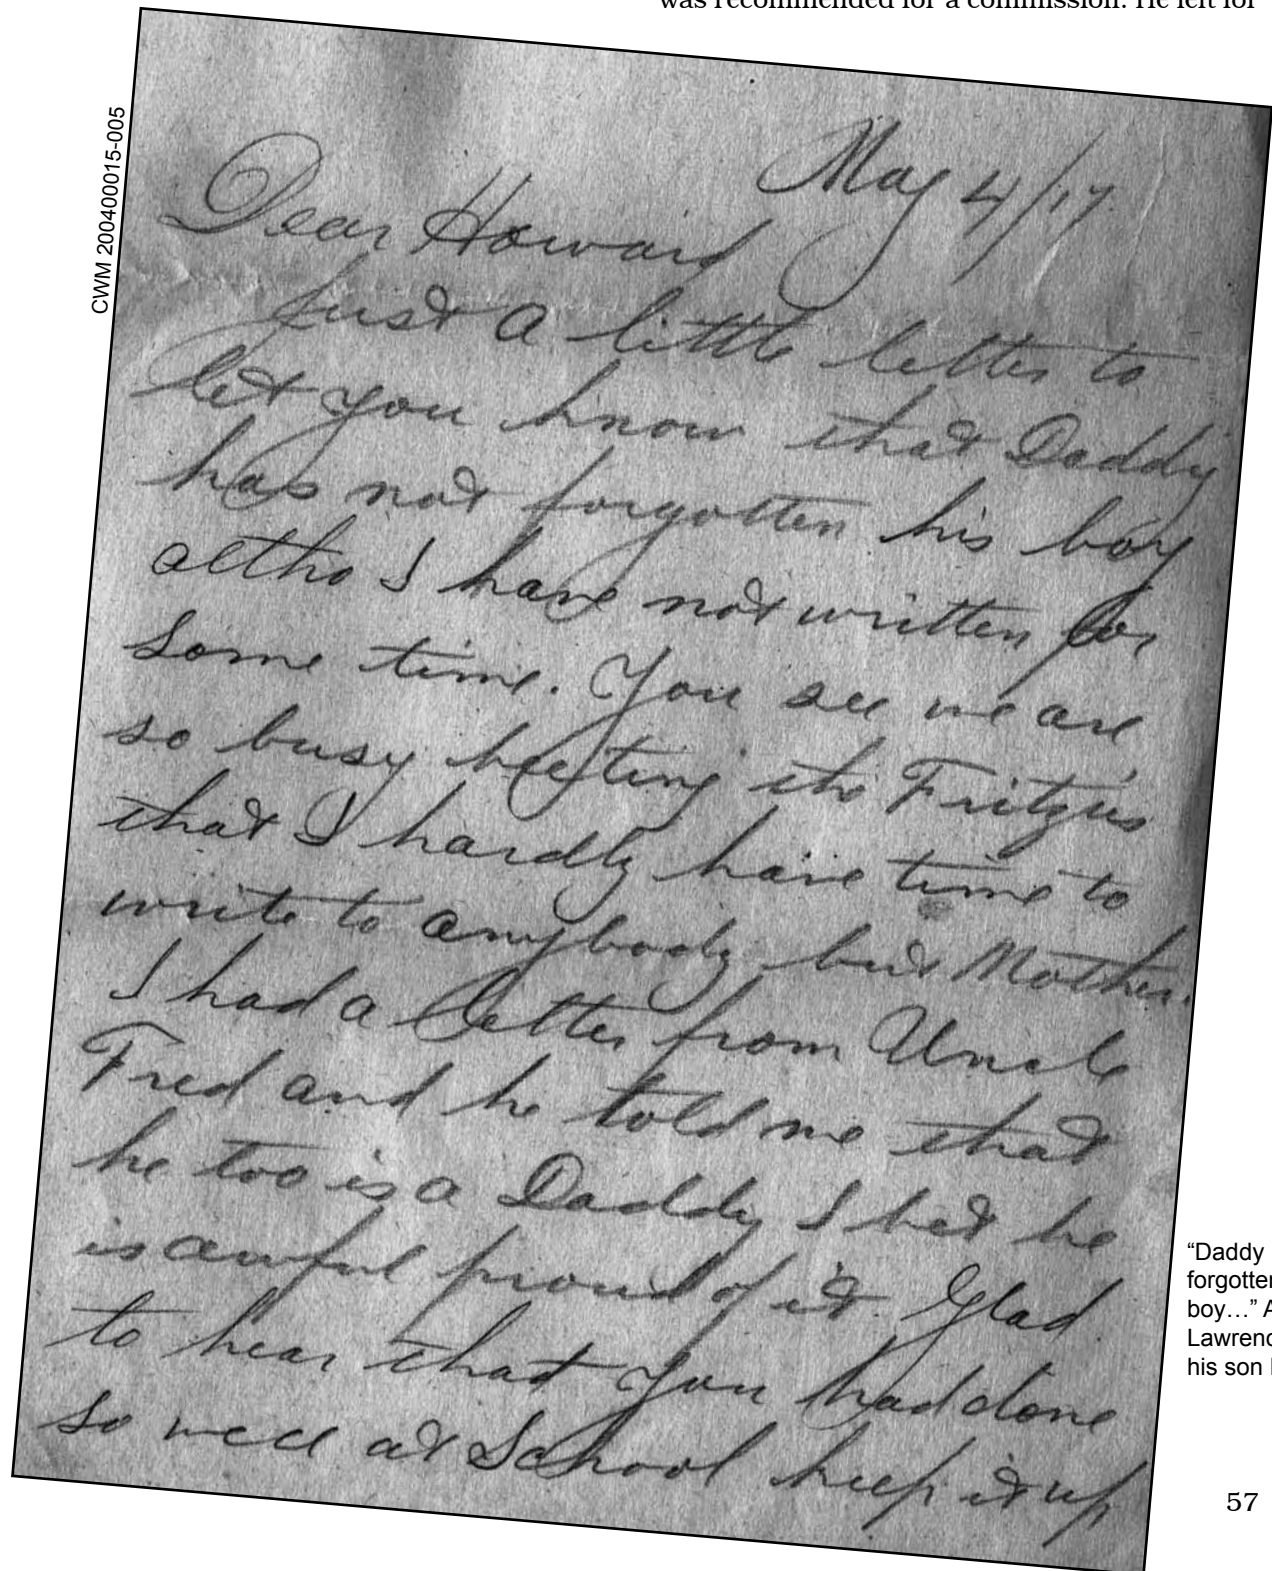 was recommended for a commission. He left for
CWM 200400015-005
May 4/17.
Dear Howard
Just a little letter to
let you know that Daddy
has not forgotten his boy
altho I have not written for
some time. You see we are
so busy the Fritzies
that I hardly have time to
write to anybody but Mother.
I had a letter from Uncle
Fred and he told me that
he too is a Daddy I bet he
is awful proud of it. Glad
to hear that you had done
so well at School keep it up
“Daddy
forgotten
boy…” A
Lawrenc
his son
57